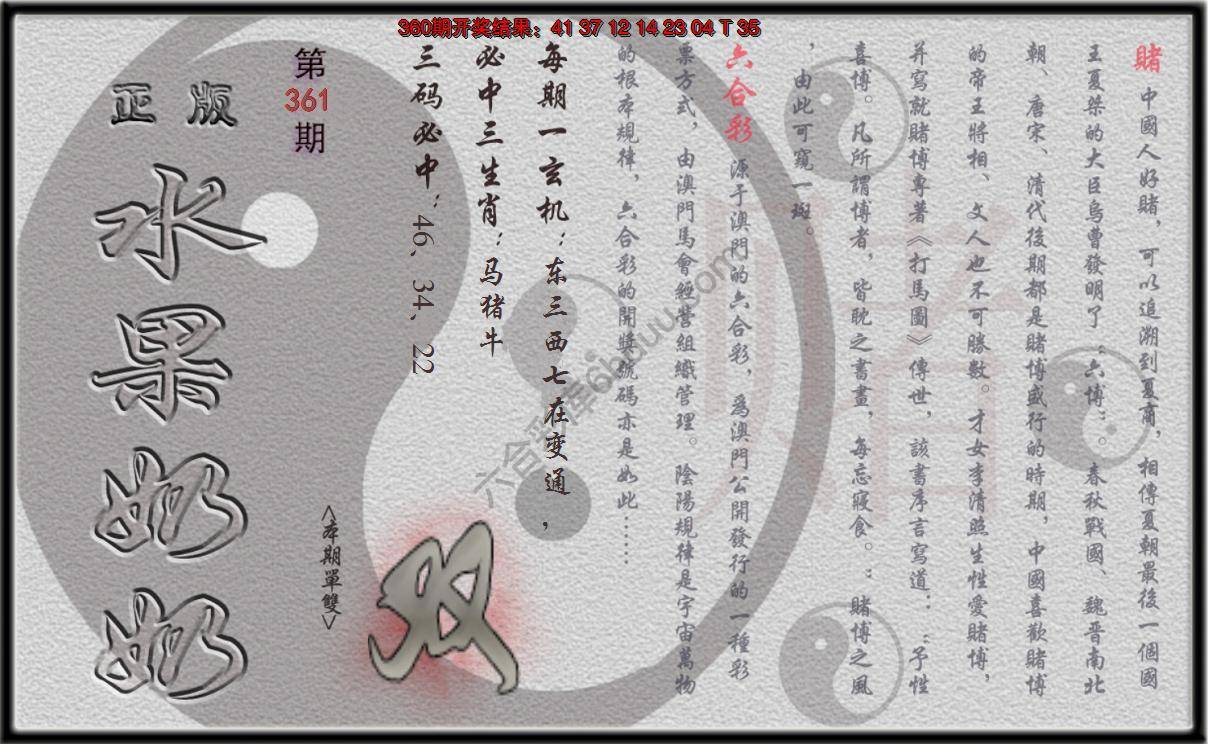 360期开奖结果：41 37 12 14 23 04 T 35
賭 中國人好賭，可以追溯到夏商，相傳夏朝最後一個國
王夏桀的大臣烏曹發明了“六博”。春秋戰國、魏晉南北
朝、唐宋、清代後期都是賭博盛行的時期，中國喜歡賭博
的帝王將相、文人也不可勝數。才女李清照生性愛賭博，
并寫就賭博專著《打馬圖》傳世，該書序言寫道：“予性
喜博。凡所謂博者，皆耽之書畫，每忘寢食。：賭博之風
，由此可窺一斑。
六合彩 源于澳門的六合彩，爲澳門公開發行的一種彩
票方式，由澳門馬會經營組織管理。陰陽規律是宇宙萬物
的根本規律，六合彩的開獎號碼亦是如此……
每期一玄机：东三西七在变通，
必中三生肖：马猪牛
三码必中：46、34、22
第361期
正版
水果奶奶
<本期單雙>
双
賭
六合彩库6hduu.com